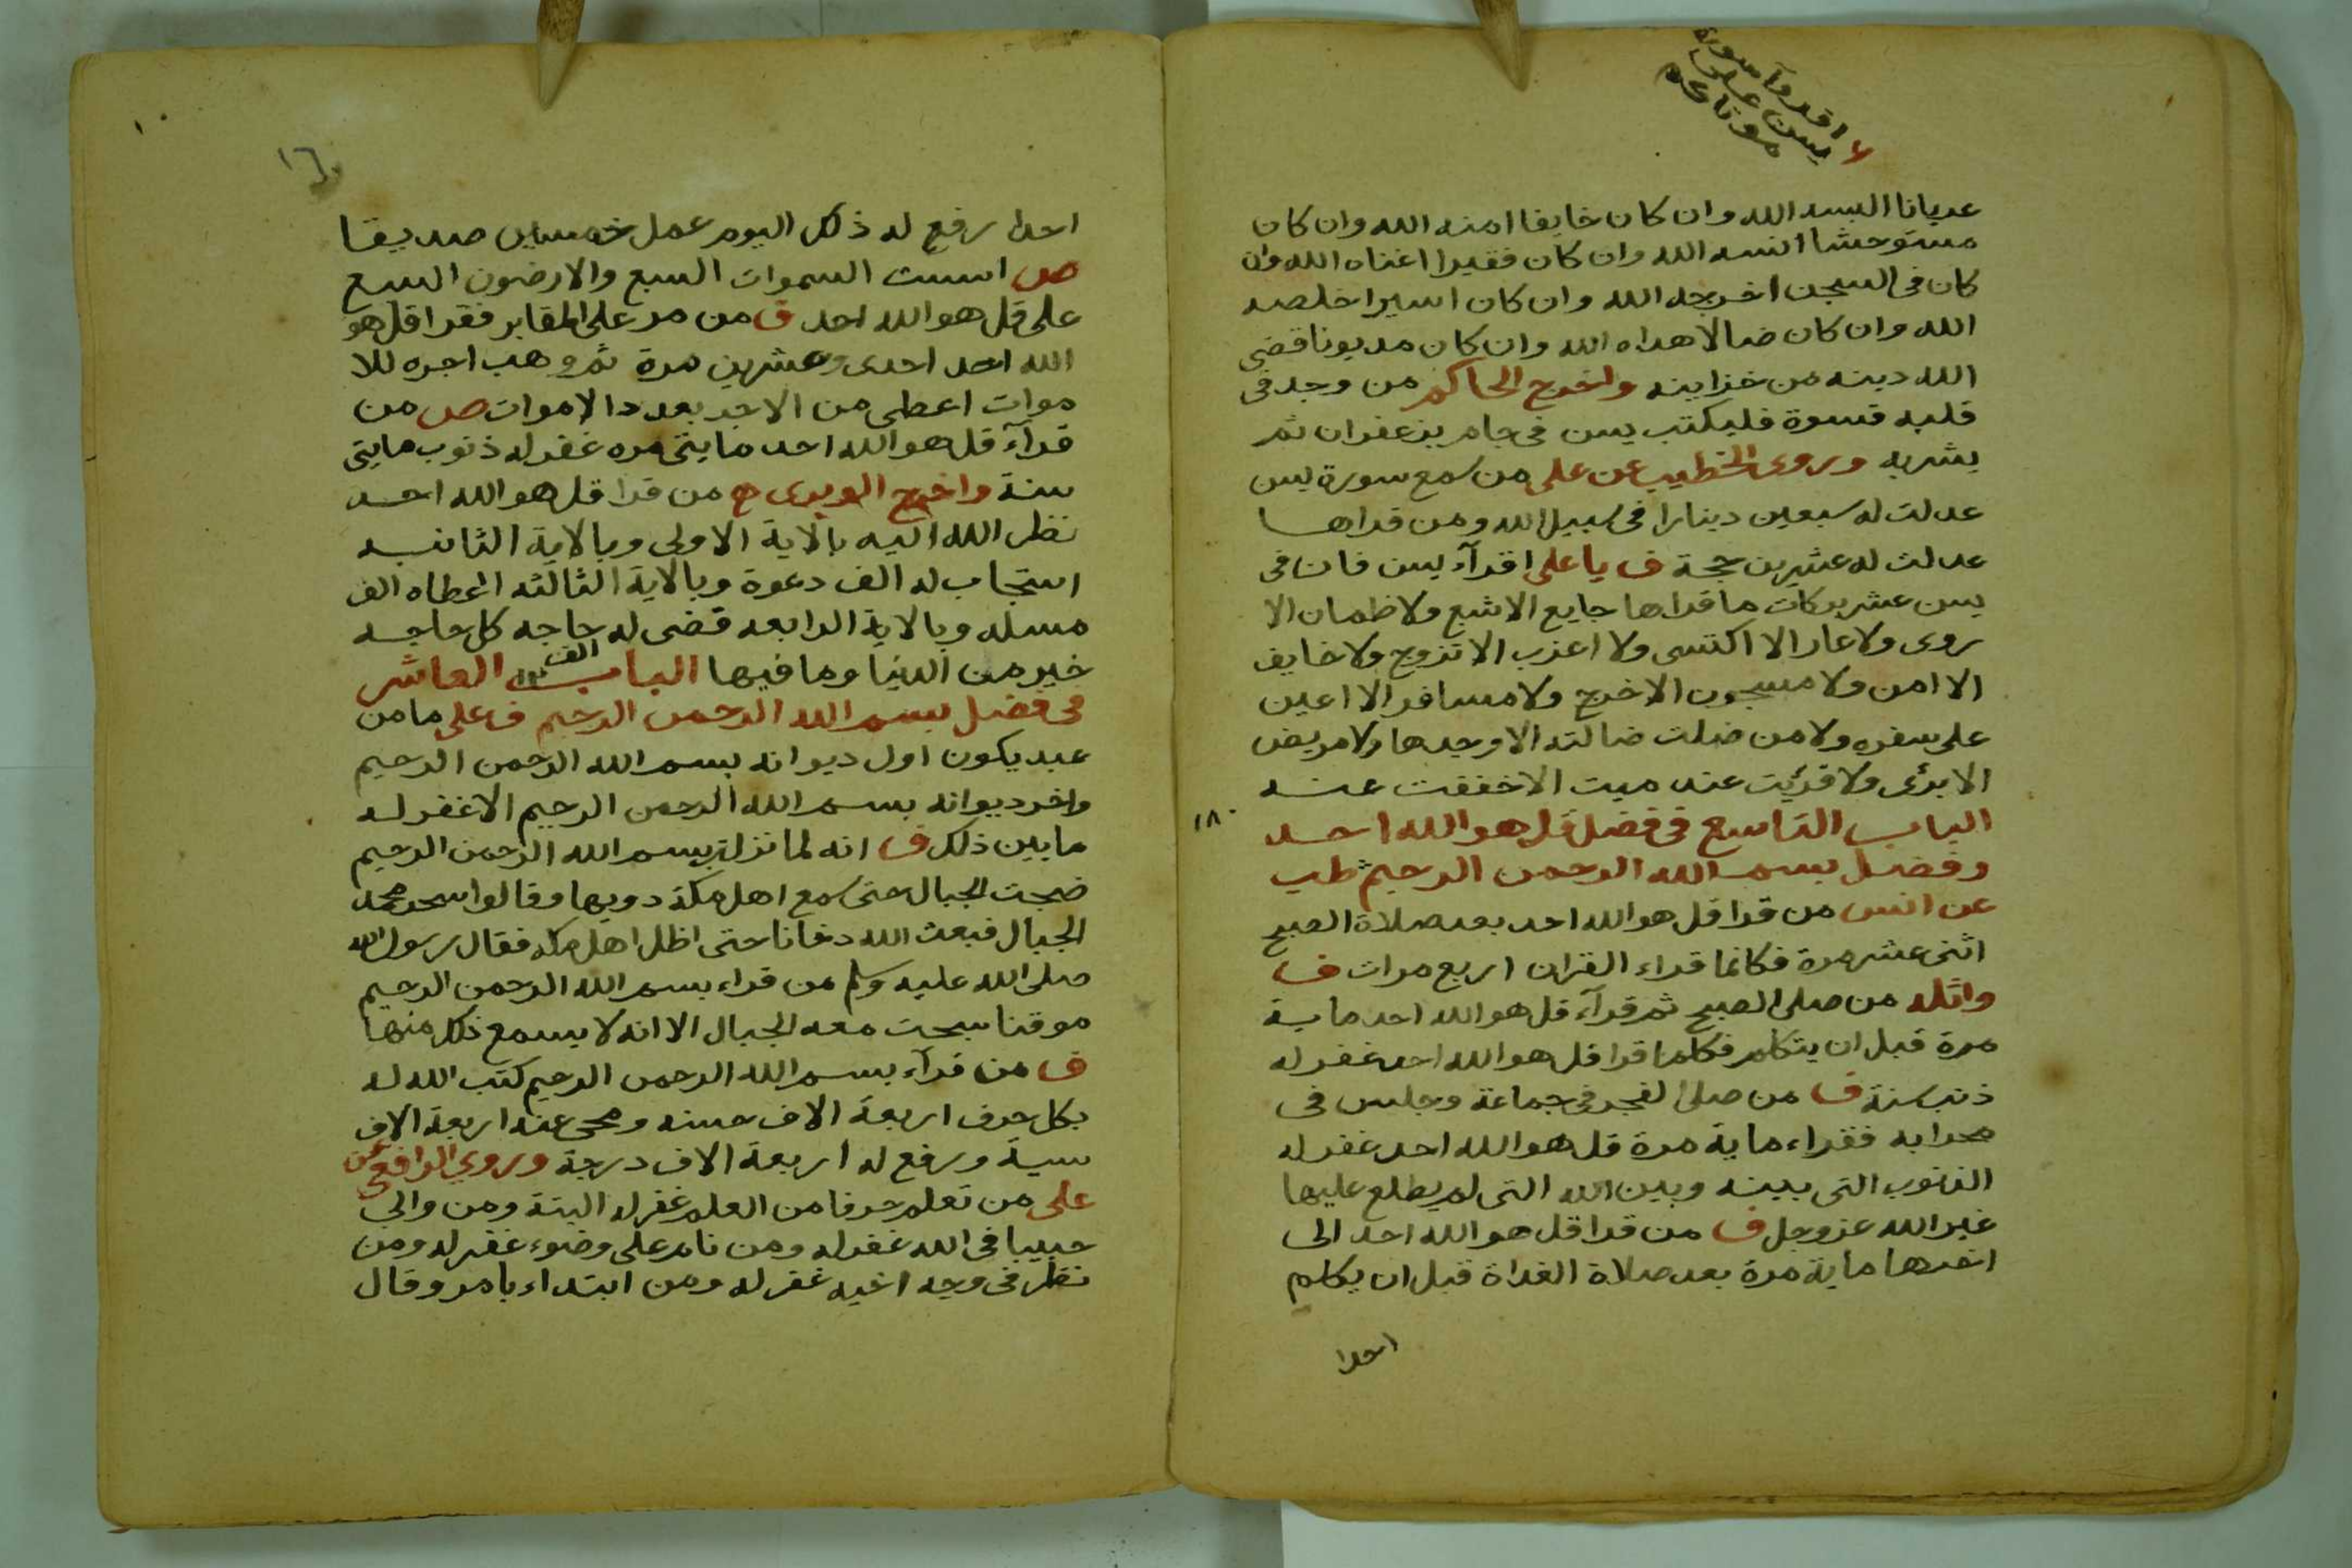 اقروآ سورة
يسن على
موتاكم
عريانا البسه الله وان كان خايفا امنه الله وان كان
مستوحشا انسه الله وان كان فقيرا اغناه الله وان
كان فى السجن اخرجه الله وان كان اسيرا خلصه
الله وان كان ضالا هداه الله وان كان مديونا قضى
الله دينه من خزاينه واخرج الحاكم من وجد فى
قلبه قسوة فليكتب يسن فى جام بزعفران ثم
يشربه وروى الخطيب عن على من سمع سورة يسن
عدلت له سبعين دينارا فى سبيل الله ومن قراها
عدلت له عشرين حجة ف يا على اقرآء يسن فان فى
يسن عشر بركات ما قراها جايع الا شبع ولا ظمان الا
روى ولا عار الا اكتسى ولا اعزب الا تزوج ولا خايف
الا امن ولا مسجون الا خرج ولا مسافر الا اعين
على سفره ولا من ضلت ضالته الا وجدها ولا مريض
الا برئى ولا قريت عند ميت الا خففت عنه
١٨٠
الباب التاسع فى فضل قل هو الله احد
وفضل بسم الله الرحمن الرحيم طب
عن انس من قرا قل هو الله احد بعد صلاة الصبح
اثنى عشر مرة فكانما قراء القران اربع مرات ف
واثله من صلى الصبح ثم قرآء قل هو الله احد ماية
مرة قبل ان يتكلم فكلما قرا قل هو الله احد غفر له
ذنب سنة ف من صلى الفجر فى جماعة وجلس فى
محرابه فقراء ماية مرة قل هو الله احد غفر له
الذنوب التى بينه وبين الله التى لم يطلع عليها
غير الله عز وجل ف من قرا قل هو الله احد الى
اخرها ماية مرة بعد صلاة الغداة قبل ان يكلم
احدا
١٠
١٦
احدا رفع له ذلك اليوم عمل خمسين صديقا
ص اسست السموات السبع والارضون السبع
على قل هو الله احد ف من مر على المقابر فقرا قل هو
الله احد احدى وعشرين مرة ثم وهب اجره للا
موات اعطى من الاجر بعدد الاموات ص من
قرآء قل هو الله احد مايتى مره غفر له ذنوب مايتى
سنة واخرج من قرا قل هو الله احد
نظر الله اليه بالاية الاولى وبالاية الثانيه
استجاب له الف دعوة وبالاية الثالثه اعطاه الف
مسله وبالاية الرابعه قضى له الف حاجه كل حاجه
خير من الدنيا وما فيها الباب العاشر
فى فضل بسم الله الرحمن الرحيم ف على ما من
عبد يكون اول ديوانه بسم الله الرحمن الرحيم
واخر ديوانه بسم الله الرحمن الرحيم الا غفر له
ما بين ذلك ف انه لما نزلت بسم الله الرحمن الرحيم
ضجت الجبال حتى سمع اهل مكة دويها وقالوا سحر محمد
الجبال فبعث الله دخانا حتى اظل اهل مكه فقال رسول الله
صلى الله عليه وسلم من قراء بسم الله الرحمن الرحيم
موقنا سبحت معه الجبال الا انه لا يسمع ذلك منها
ف من قرآء بسم الله الرحمن الرحيم كتب الله له
بكل حرف اربعة الاف حسنه ومحى عنه اربعة الاف
سية ورفع له اربعة الاف درجة وروي الرافعى عن
على من تعلم حرفا من العلم غفر له البتة ومن والى
حبيبا فى الله غفر له ومن نام على وضوء غفر له ومن
نظر فى وجه اخيه غفر له ومن ابتداء بامر وقال